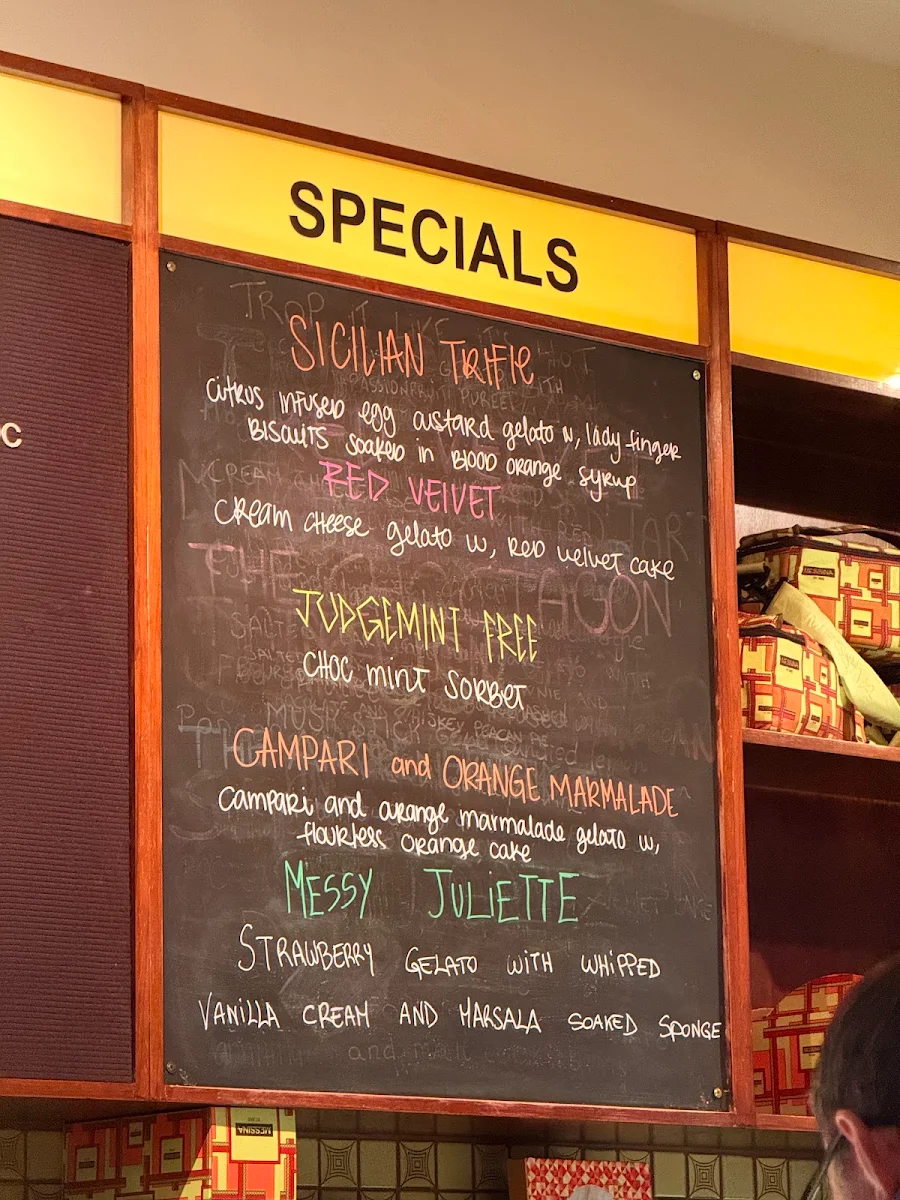 SPECIALS
SICILIAN TRIFLE
CITRUS INFUSED egg custard gelato w, lady finger
BISCUITS SOAKED in BLOOD orange syrup
RED VELVET
CREAM CHEESE gelato w, RED velvet cake
JUDGEMINT FREE
CHOC MINT SORBET
CAMPARI and ORANGE MARMALADE
Campari and orange marmalade gelato w,
flourless orange cake
MESSY JULIETTE
STRAWBERRY GELATO WITH WHIPPED
VANILLA CREAM AND MARSALA SOAKED SPONGE
C
MESSINA
MESSINA
MESSINA